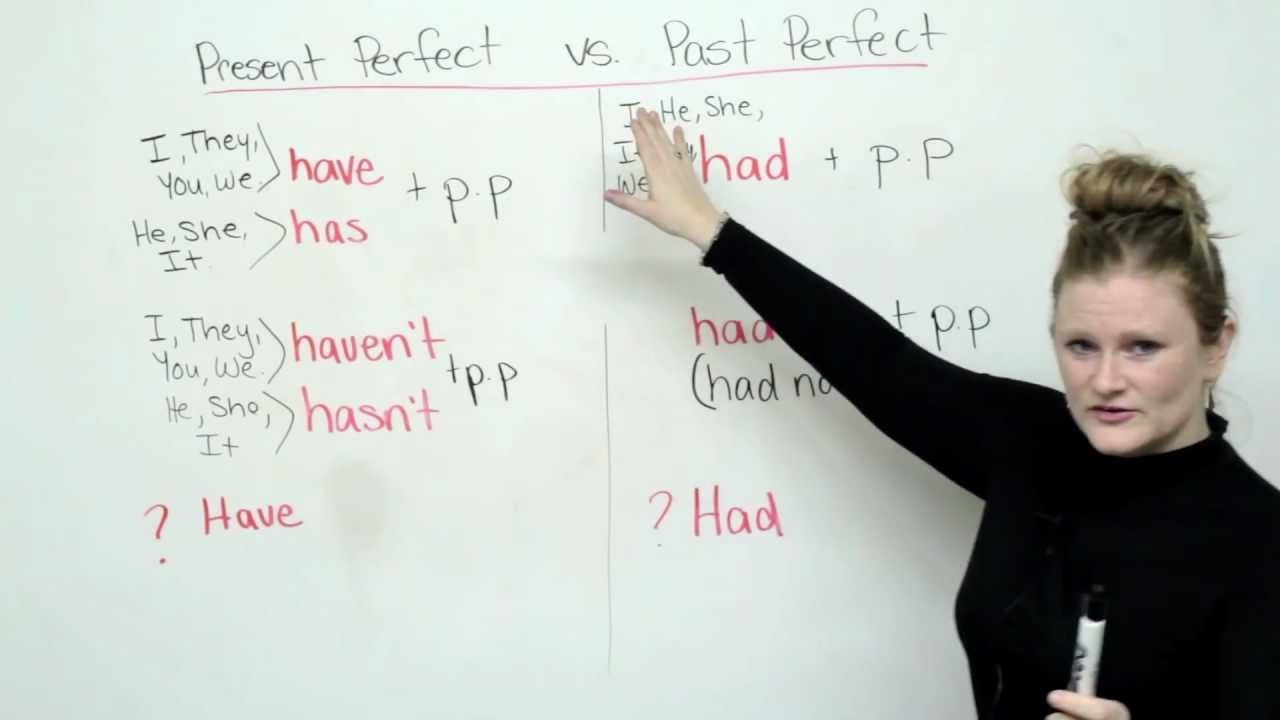 Present Perfect vs. Past Perfect
I, They,
You, we.
have
+ p.p
He, She,
It.
has
I, He, She,
We
had + p.p
I, They,
You, we.
haven't
+p.p
He, She,
It
hasn't
had
+ p.p
(had
? Have
? Had